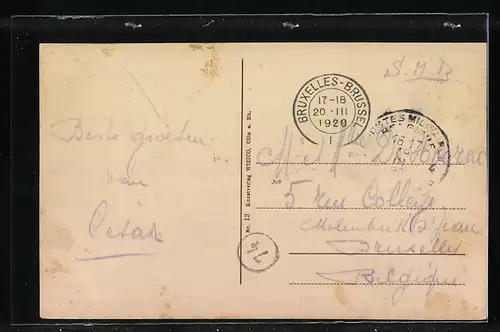 Beste groeten
van
César
Nr. 13 Kunstverlag WIZICO, Cöln a. Rh.
S.M.B
BRUXELLES-BRUSSEL
17-18
20 III
1920
1
POSTES MILITAIRES
5 rue Collège
Molenbeek St Jean
Bruxelles
Belgique